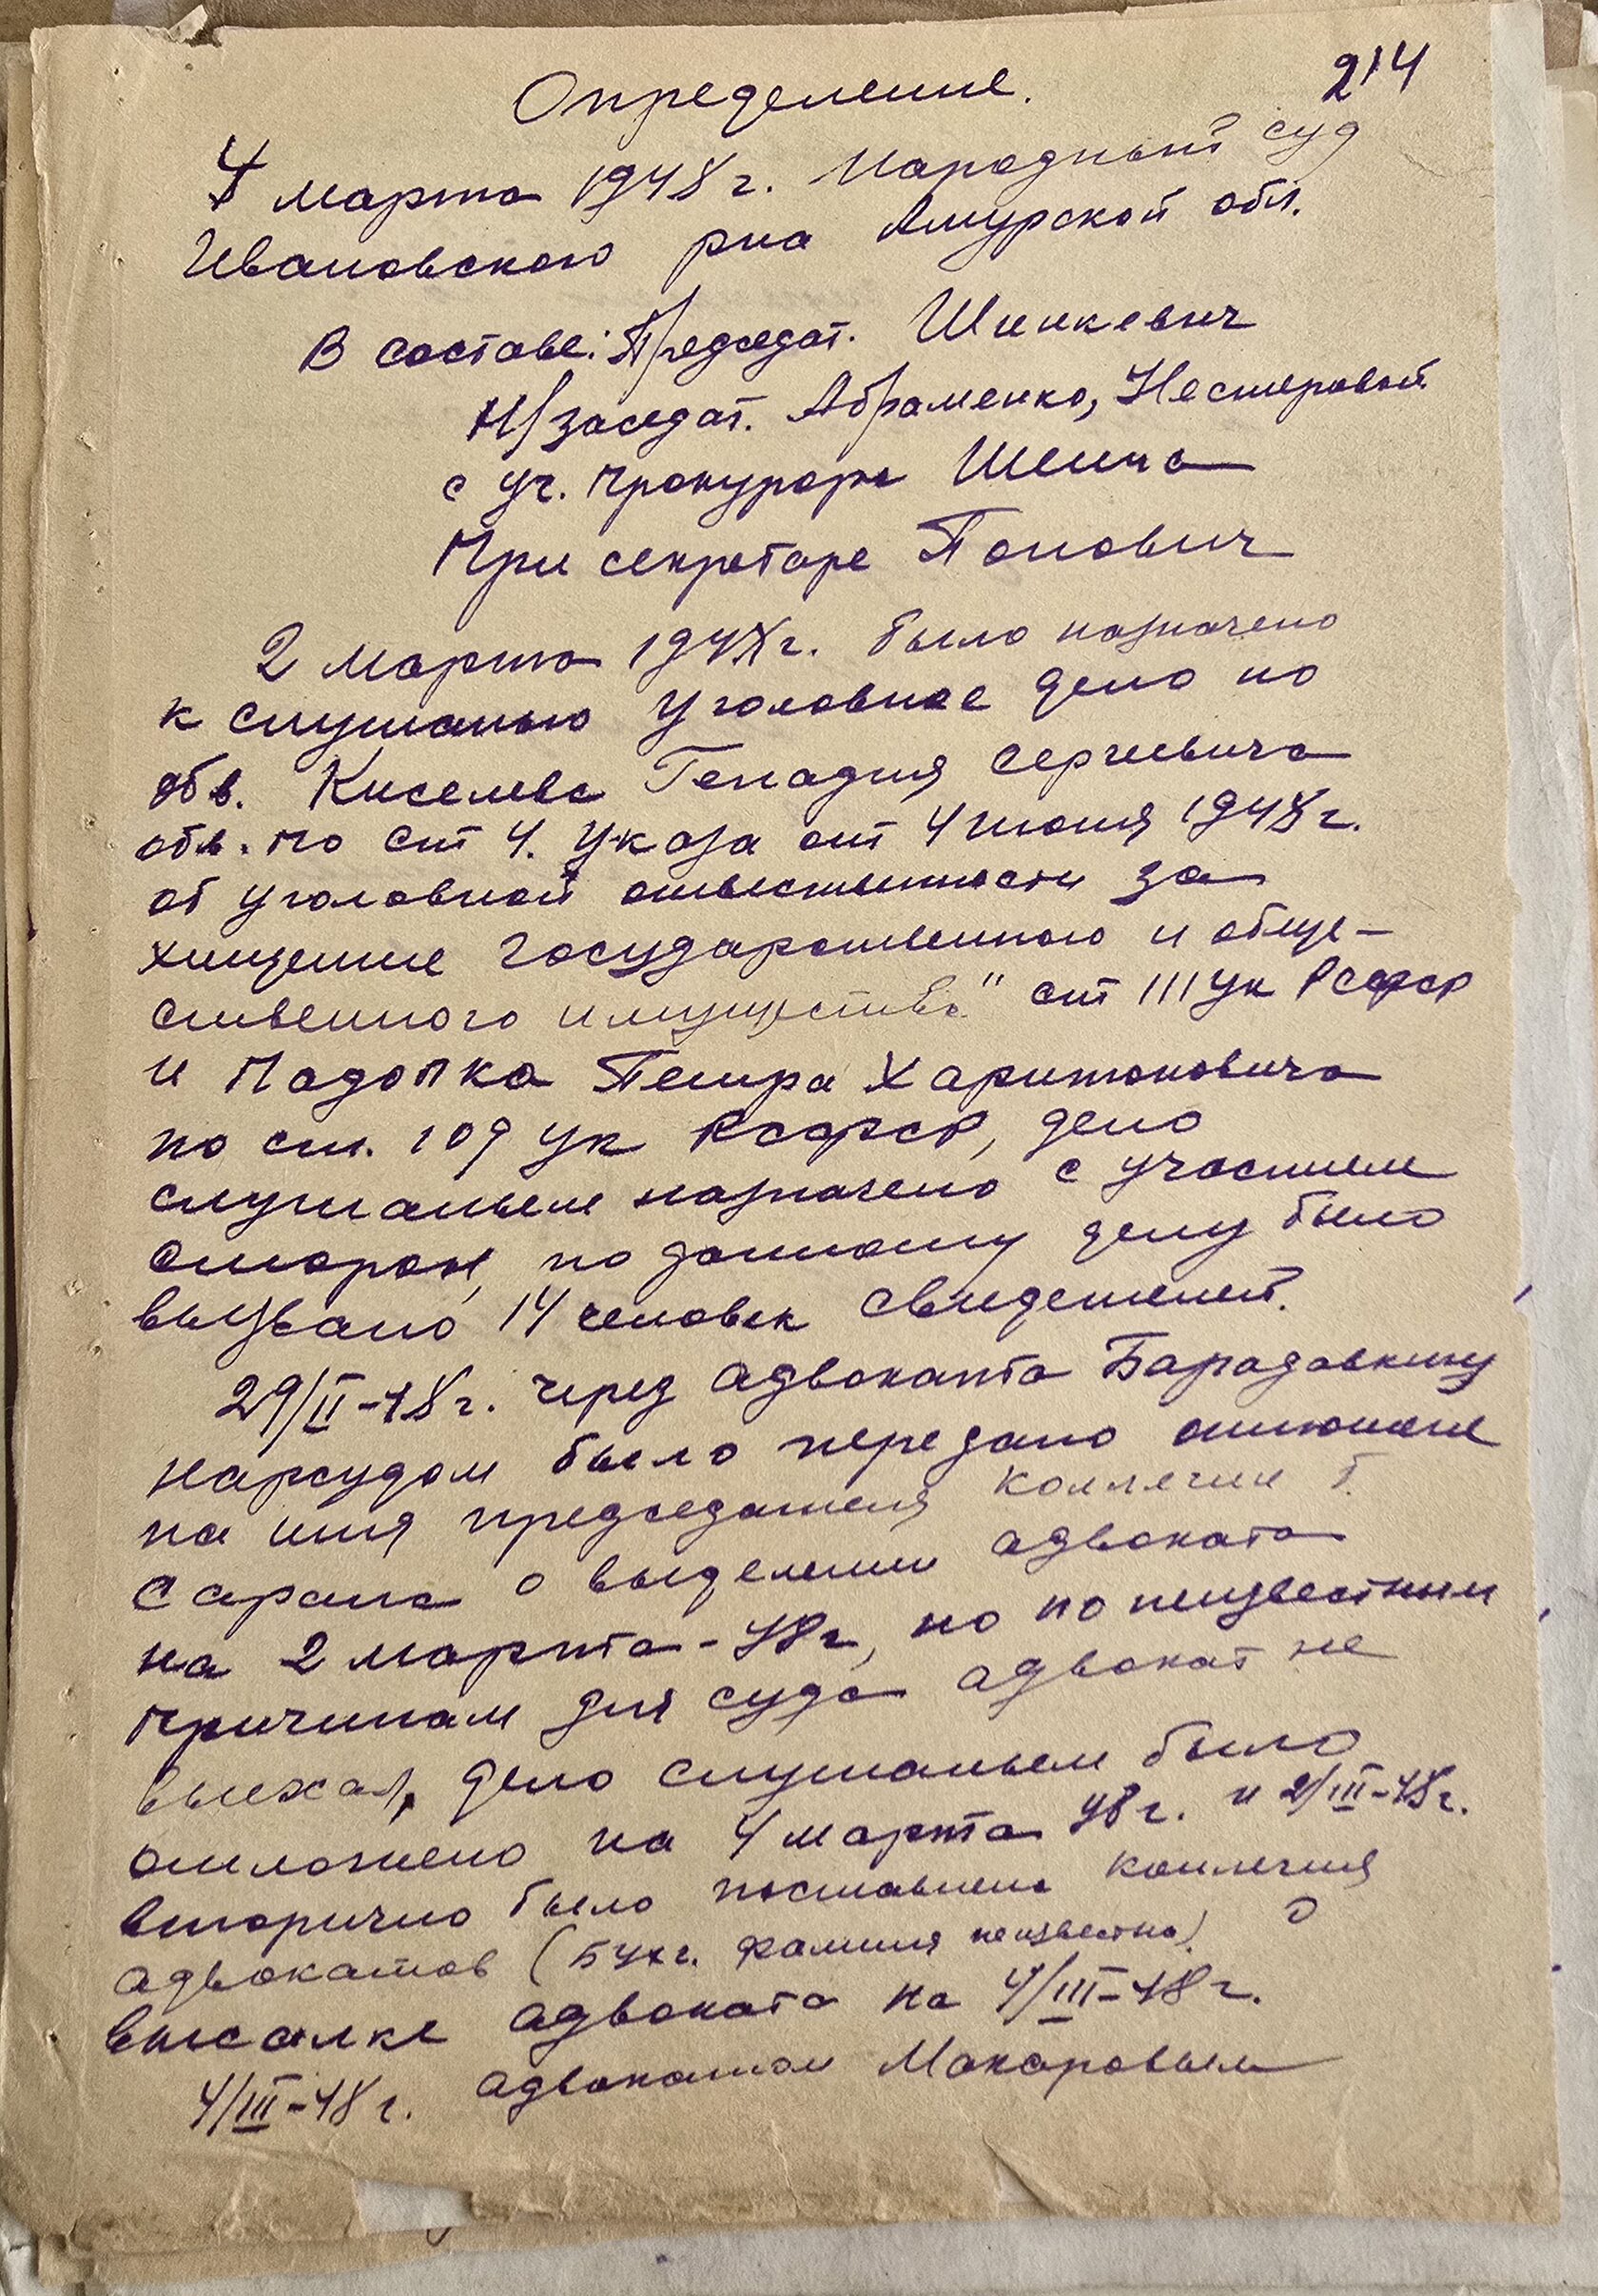 214
Определение.
4 марта 1948 г. Народный суд
Ивановского р-на Амурской обл.
В составе: Председат. Шинкевич
Н/заседат. Абраменко, Нестеровой
с уч. прокурора Шеина
При секретаре Попович
2 марта 1948 г. было назначено
к слушанью уголовное дело по
обв. Киселева Генадия Сергеевича
обв. по ст 4. Указа от 4 июня 1948 г.
об уголовной ответственности за
хищение государственного и обще-
ственного имущества" ст 111 УК РСФСР
и Падопка Петра Харитоновича
по ст. 109 УК РСФСР, дело
слушаньем назначено с участием
сторон, по данному делу было
вызвано 14 человек свидетелей.
29/II-48 г. через адвоката Барадавкину
нарсудом было передано отношене
на имя председателя коллегии т.
Сарана о выделении адвоката
на 2 марта-48 г, но по неизвестным
причинам для суда адвокат не
выехал, дело слушаньем было
отложено на 4 марта 48 г. и 2/III-48 г.
вторично было поставлена коллегия
адвокатов (Бухг. фамилия неизвестна) о
высылке адвоката на 4/III-48 г.
4/III-48 г. адвокатом Макаровым